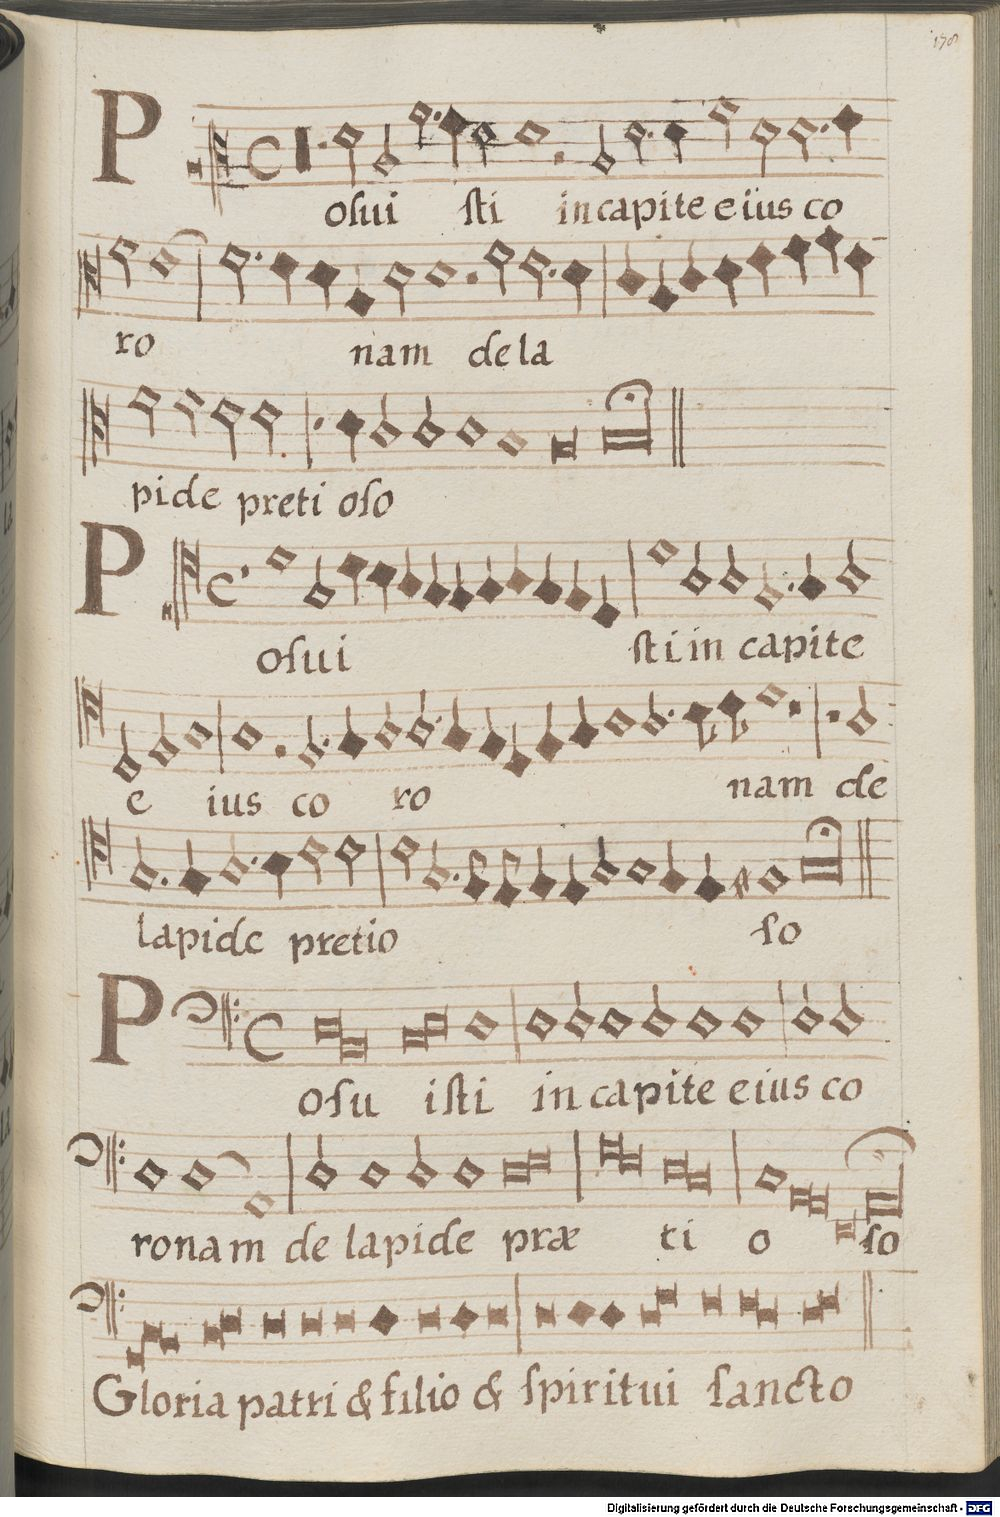 178
P
oſui ſti in capite eius co
ro nam de la
pide preti oſo
P
oſui ſti in capite
e ius co ro nam de
lapide pretio ſo
P
oſu iſti in capite eius co
ronam de lapide præ ti o ſo
Gloria patri & filio & ſpiritui ſancto
Digitalisierung gefördert durch die Deutsche Forschungsgemeinschaft - DFG